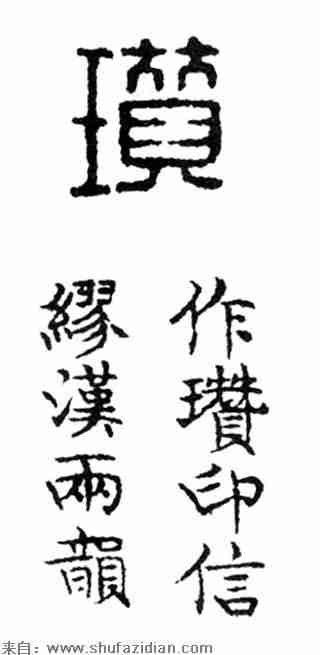 瓚
作瓉印信
繆漢兩韻
来自：www.shufazidian.com